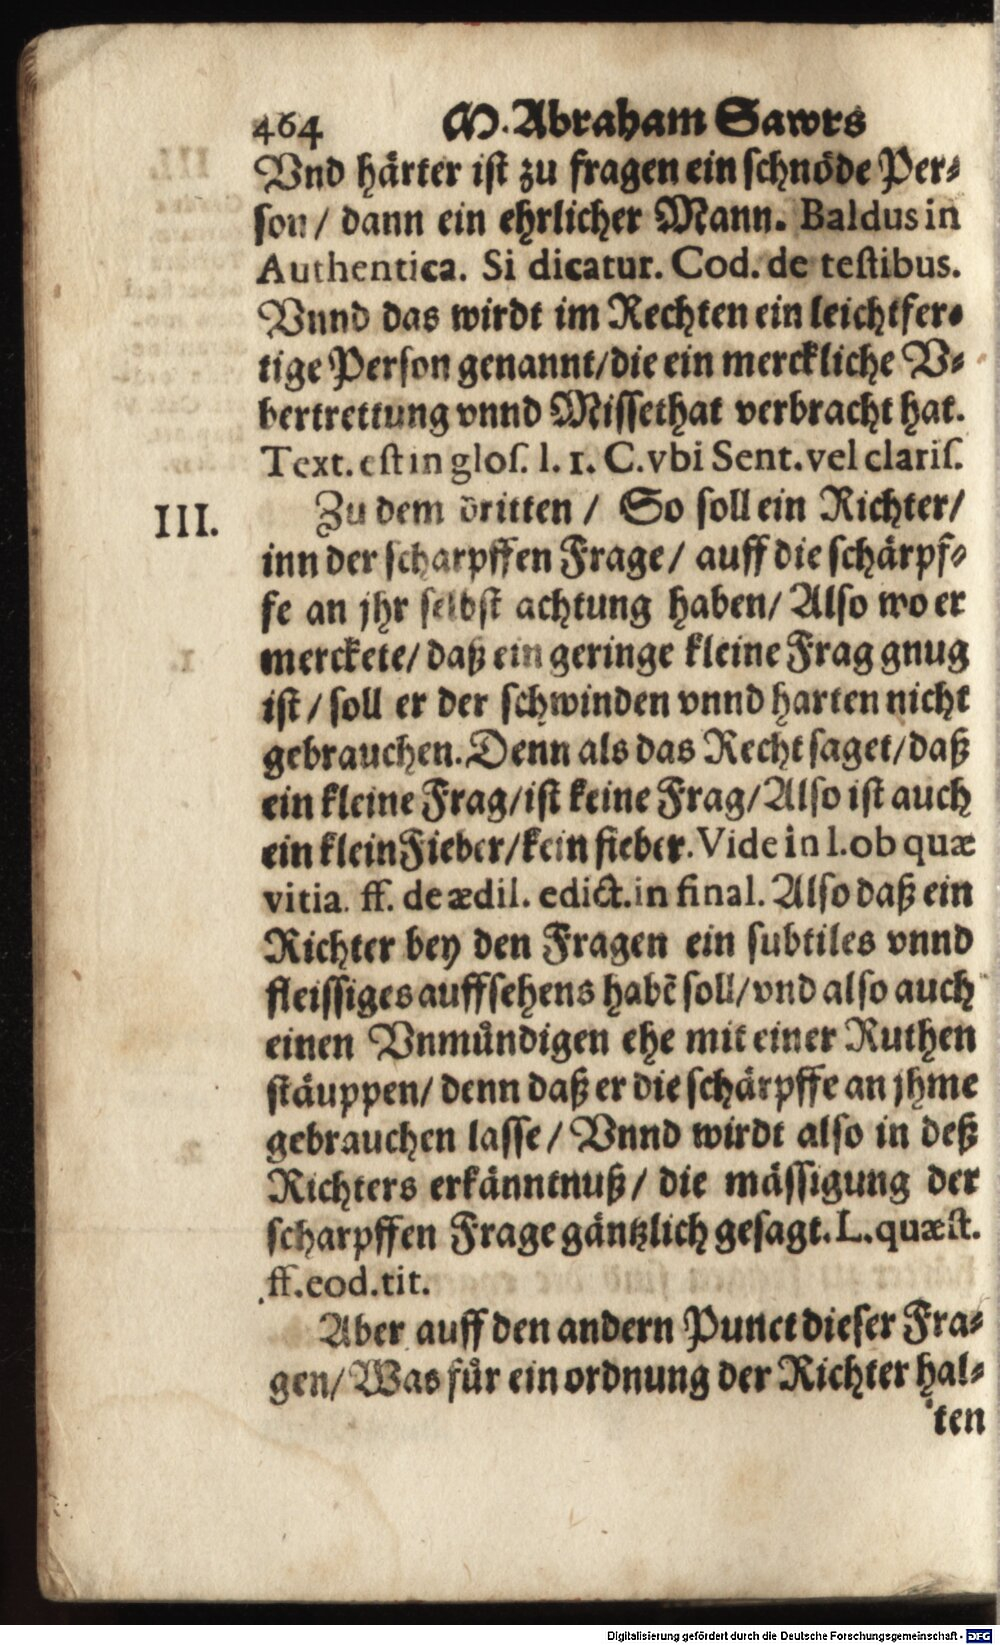 464 M. Abraham Sawrs
Vnd härter ist zu fragen ein schnöde Per⸗
son / dann ein ehrlicher Mann. Baldus in
Authentica. Si dicatur. Cod. de testibus.
Vnnd das wirdt im Rechten ein leichtfer⸗
tige Person genannt/die ein merckliche V⸗
bertrettung vnnd Missethat verbracht hat.
Text. est in glos. l. 1. C. vbi Sent. vel claris.
III. Zu dem dritten / So soll ein Richter/
inn der scharpffen Frage/ auff die schärpf⸗
fe an jhr selbst achtung haben/ Also wo er
merckete/ daß ein geringe kleine Frag gnug
ist / soll er der schwinden vnnd harten nicht
gebrauchen. Denn als das Recht saget/daß
ein kleine Frag/ist keine Frag/Also ist auch
ein klein Fieber/kein fieber. Vide in l. ob quæ
vitia. ff. de ædil. edict. in final. Also daß ein
Richter bey den Fragen ein subtiles vnnd
fleissiges auffsehens habẽ soll/vnd also auch
einen Vnmůndigen ehe mit einer Ruthen
stäuppen/ denn daß er die schärpffe an jhme
gebrauchen lasse / Vnnd wirdt also in deß
Richters erkänntnuß/ die mässigung der
scharpffen Frage gäntzlich gesagt. L. quæst.
ff. eod. tit.
Aber auff den andern Punct dieser Fra⸗
gen/ Was für ein ordnung der Richter hal⸗
ten
Digitalisierung gefördert durch die Deutsche Forschungsgemeinschaft - DFG